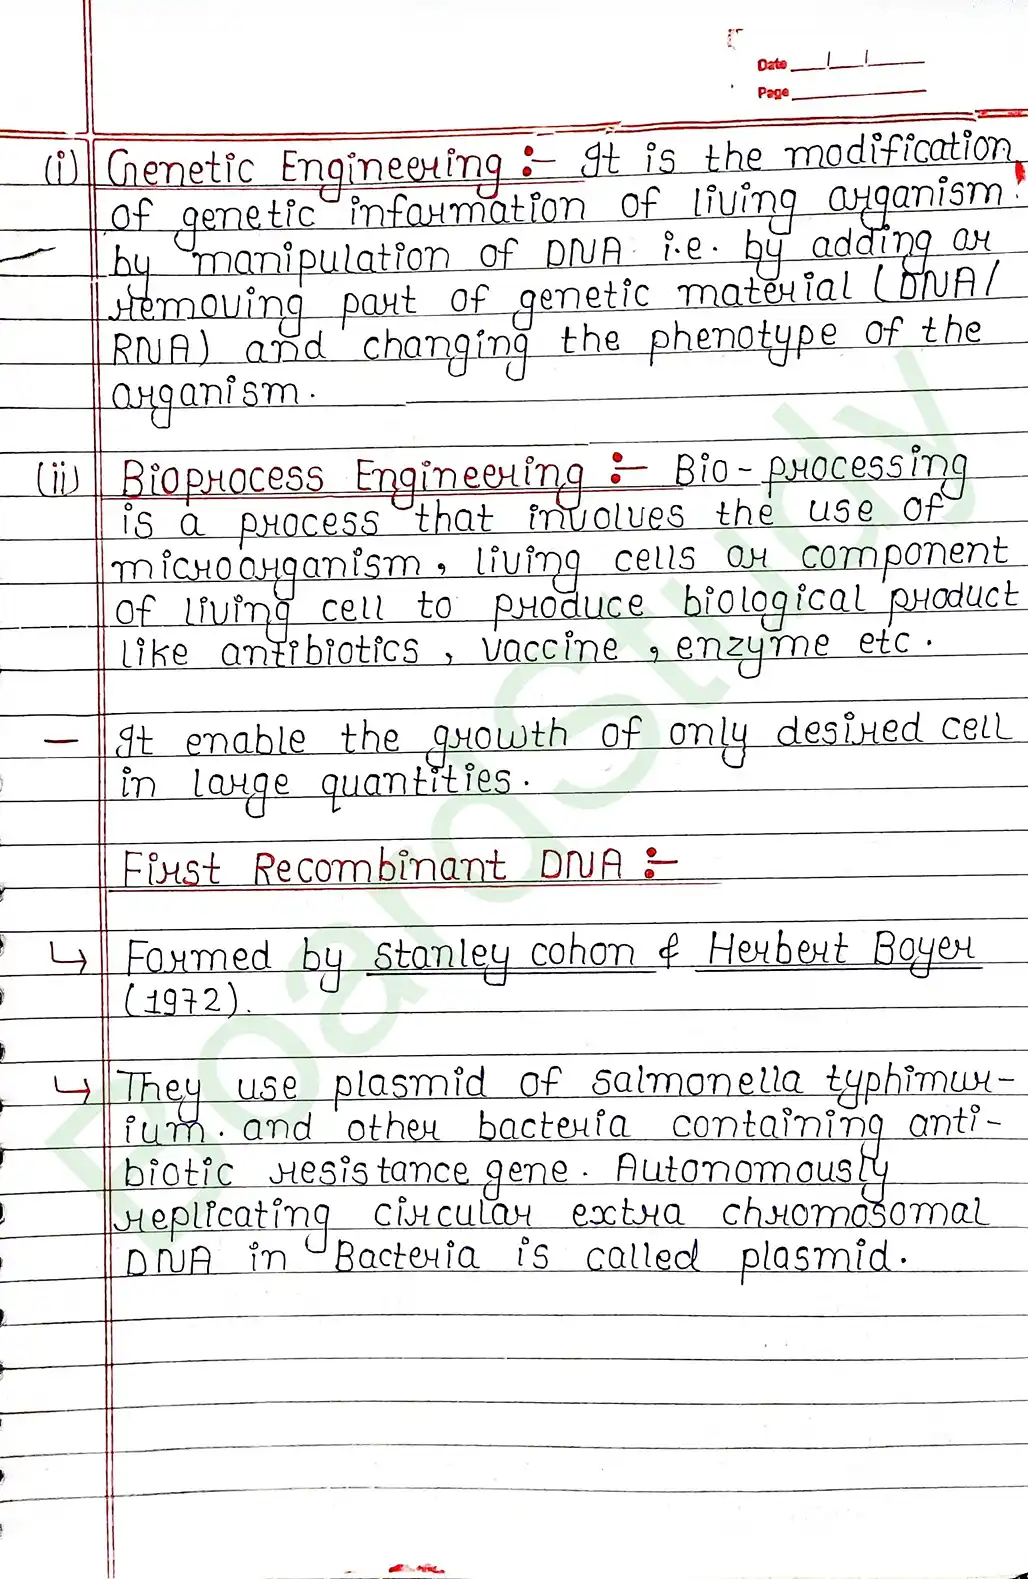 Date / /
Page
(i) Genetic Engineering :- It is the modification
of genetic information of living organism.
by manipulation of DNA. i.e. by adding or
removing part of genetic material (DNA/
RNA) and changing the phenotype of the
organism.
(ii) Bioprocess Engineering :- Bio-processing
is a process that involves the use of
microorganism, living cells or component
of living cell to produce biological product
like antibiotics, vaccine, enzyme etc.
- It enable the growth of only desired cell
in large quantities.
First Recombinant DNA :-
↳ Formed by Stanley cohon & Herbert Boyer
(1972).
↳ They use plasmid of salmonella typhimur-
ium. and other bacteria containing anti-
biotic resistance gene. Autonomously
replicating circular extra chromosomal
DNA in Bacteria is called plasmid.
BoardStudy